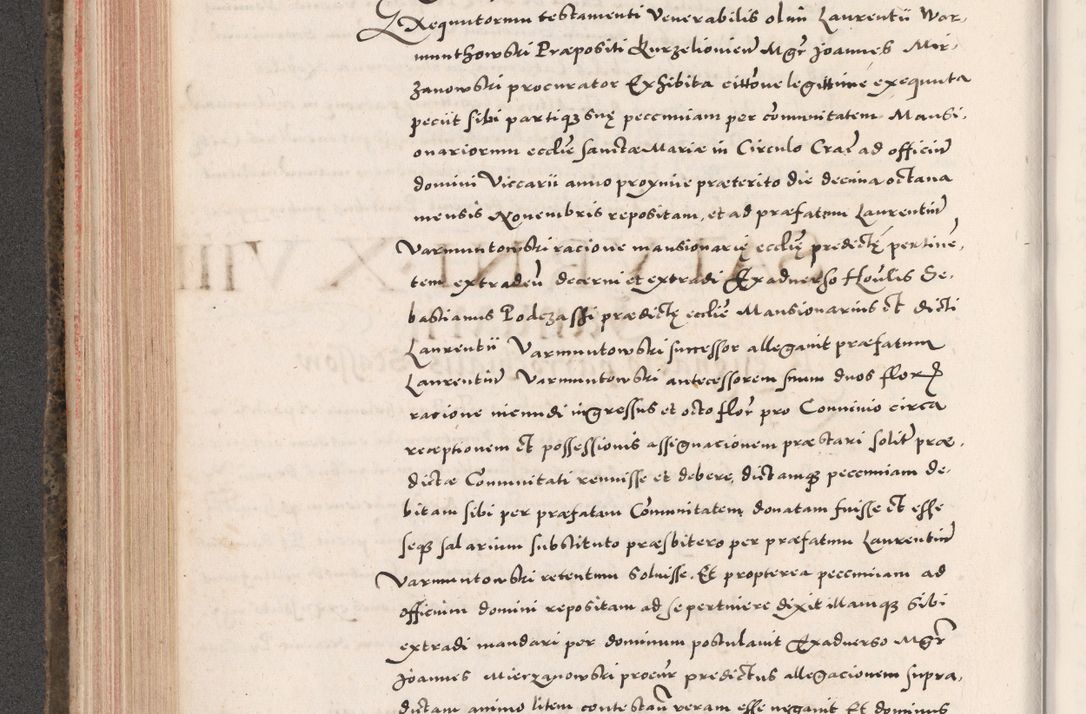 Exequutorum testamenti Venerabilis olim Laurentii War-
munthowski Præpositi Kurzelionien̄ Mgr̄ Joannes Mir-
zanowski procurator Exhibita citt̄one legittime exequuta
peciit sibi partiq̨ suę peccuniam per cōmunitatem Mansi-
onariorum eccl̄ie sanctæ Mariæ in Circulo Crac̄ ad officiū
domini Viccarii anno proxime præterito die decima octava
mensis Novembris repositam, et ad præfatum Laurentiū
Varmuntowski racione mansionarię eccl̄ię predictę pertinē-
tem extradeū decerni et extradi Ex adverso Ho[n]lis Se-
bastianus Podczasski prædictę eccl̄ie Mansionarius et dicti
Laurentii Varmuntowski successor allegavit præfatum
Laurentiū Varmuntowski antecessorem suum duos flor
racione nieundi ingressus et octo flor̄ pro Convivio circa
receptionem et possessionis assignacionem præstari solit̄ præ-
dictæ Communitati tenuisse et debere, dictamq̨ peccuniam de-
bitam sibi per præfatam Cōmunitatem donatam fuisse et esse
seq̨ salarium substituto præsbitero per præfatum Laurentiū
Varmuntowski retentum solvisse. Et propterea peccuniam ad
officium domini repositam ad se pertinere dixit illamq̨ sibi
extradi mandari per dominum postulavit Ex adverso Mgr̄
Joannes Mierzanowski procur̄ predictus allegacionem supra-
dictam animo litem contestan̄ veram esse negavit Et dominus